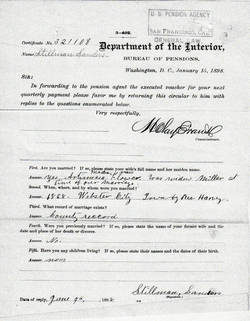 3-402.
U. S. PENSION AGENCY
SAN FRANCISCO, CAL.
GENERAL LAW
Certificate No. 321108
Name, Stillman Sanders
Department of the Interior,
BUREAU OF PENSIONS,
Washington, D. C., January 15, 1898.
SIR:
In forwarding to the pension agent the executed voucher for your next
quarterly payment please favor me by returning this circular to him with
replies to the questions enumerated below.
Very respectfully,
First. Are you married? If so, please state your wife's full name and her maiden name.
Answer. Yes Flower was widow Miller at
time of our marriage
Second. When, where, and by whom were you married?
Answer. 1888 Webster City Iowa by
Third. What record of marriage exists?
Answer. County record
Fourth. Were you previously married? If so, please state the name of your former wife and the
date and place of her death or divorce.
Answer. No.
Fifth. Have you any children living? If so, please state their names and the dates of their birth.
Answer. none
Stillman Sanders
Date of reply, June 9th, 1898